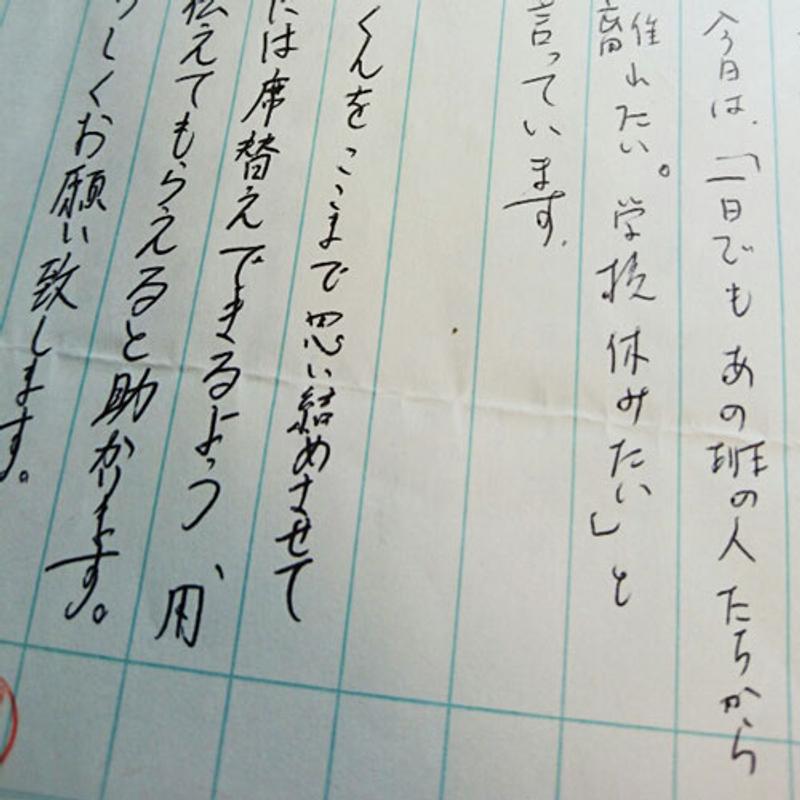 今日は、「一日でもあの班の人たちから
離れたい。学校休みたい」と
言っています。
くんをここまで思い詰めさせて
には席替えできるよう、用
伝えてもらえると助かります。
しくお願い致します。